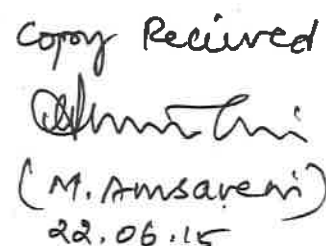 Copy Recieved
(M. Amsaveni)
22.06.15